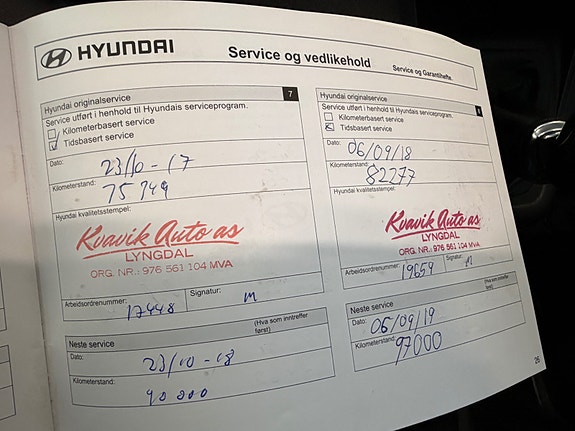 HYUNDAI
Service og vedlikehold
Service og Garantihefte.
Hyundai originalservice
7
Service utført i henhold til Hyundais serviceprogram.
Kilometerbasert service
Tidsbasert service
Dato:
23/10-17
Kilometerstand:
75 949
Hyundai kvalitetsstempel:
Kvavik Auto as
LYNGDAL
ORG. NR.: 976 561 104 MVA
Arbeidsordrenummer:
17448
Signatur:
m
Neste service
(Hva som inntreffer først)
Dato:
23/10-18
Kilometerstand:
90 000
Hyundai originalservice
8
Service utført i henhold til Hyundais serviceprogram.
Kilometerbasert service
Tidsbasert service
Dato:
06/09/18
Kilometerstand:
82277
Hyundai kvalitetsstempel:
Kvavik Auto as
LYNGDAL
ORG. NR.: 976 561 104 MVA
Arbeidsordrenummer:
19659
Signatur:
m
Neste service
(Hva som inntreffer først)
Dato:
06/09/19
Kilometerstand:
97000
26